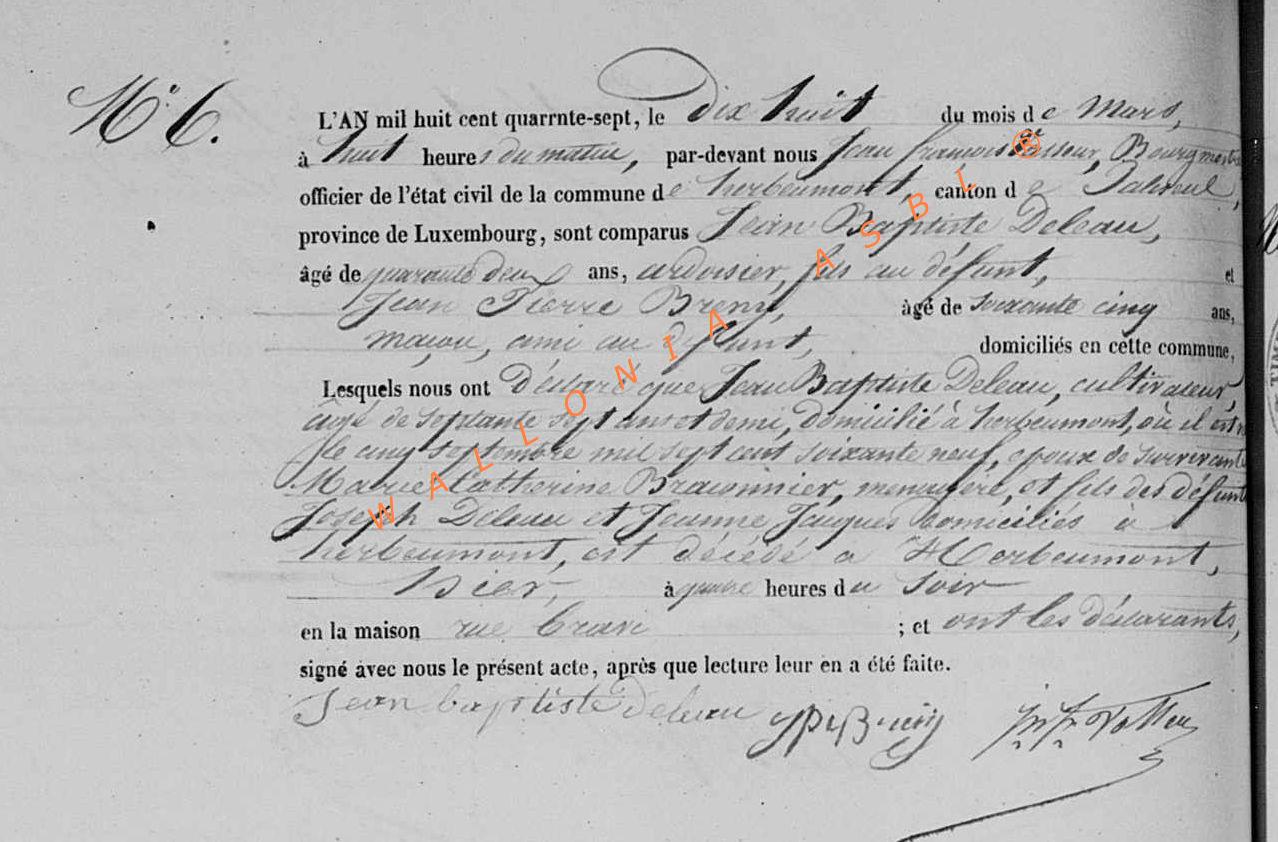 N° 6.
L'AN mil huit cent quarrnte-sept, le Dix huit du mois de Mars,
à huit heures du matin, par-devant nous Jean françois Bourgmestre
officier de l'état civil de la commune de herbeumont, canton de Paliseul,
province de Luxembourg, sont comparus Jean Baptiste Deleau,
âgé de quarante deux ans, ardoisier, fils au défunt, et
Jean Pierre âgé de soixante cinq ans,
maçon, ami au défunt, domiciliés en cette commune,
Lesquels nous ont Déclaré que Jean Baptiste Deleau, cultivateur,
âgé de septante sept ans et demi, Domicilié à herbeumont, où il est
le cinq septembre mil sept cent soixante neuf, époux de survivante
Marie Catherine Braconnier, menagère, et fils des défunts
Joseph Deleau et Jeanne Jacques domiciliés à
herbeumont, est décédé à Herbeumont,
hier, à quatre heures du soir
en la maison rue ; et ont les déclarants,
signé avec nous le présent acte, après que lecture leur en a été faite.
Jean baptiste deleau
WALLONIA ASBL ®